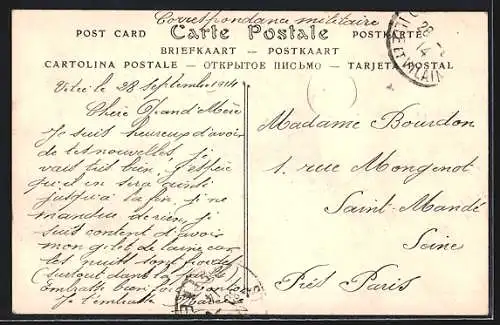 Correspondance militaire
POST CARD Carte Postale POSTKARTE
BRIEFKAART — POSTKAART
CARTOLINA POSTALE — ОТКРЫТОЕ ПИСЬМО — TARJETA POSTAL
Vitré le 28 septembre 1914
Chère Grand'Mère
Je suis heureux d'avoir
de tes nouvelles, je
vais très bien, j'espère
qu'il en sera ainsi
jusqu'à la fin, je ne
manque de rien, je
suis content d'avoir
mon gilet de laine car
les nuits sont froides
(surtout dans la
bien
Je t'embrasse
Madame Bourdon
1. rue Mongenot
Saint-Mandé
Seine
Près Paris
28
14
ET VILAINE